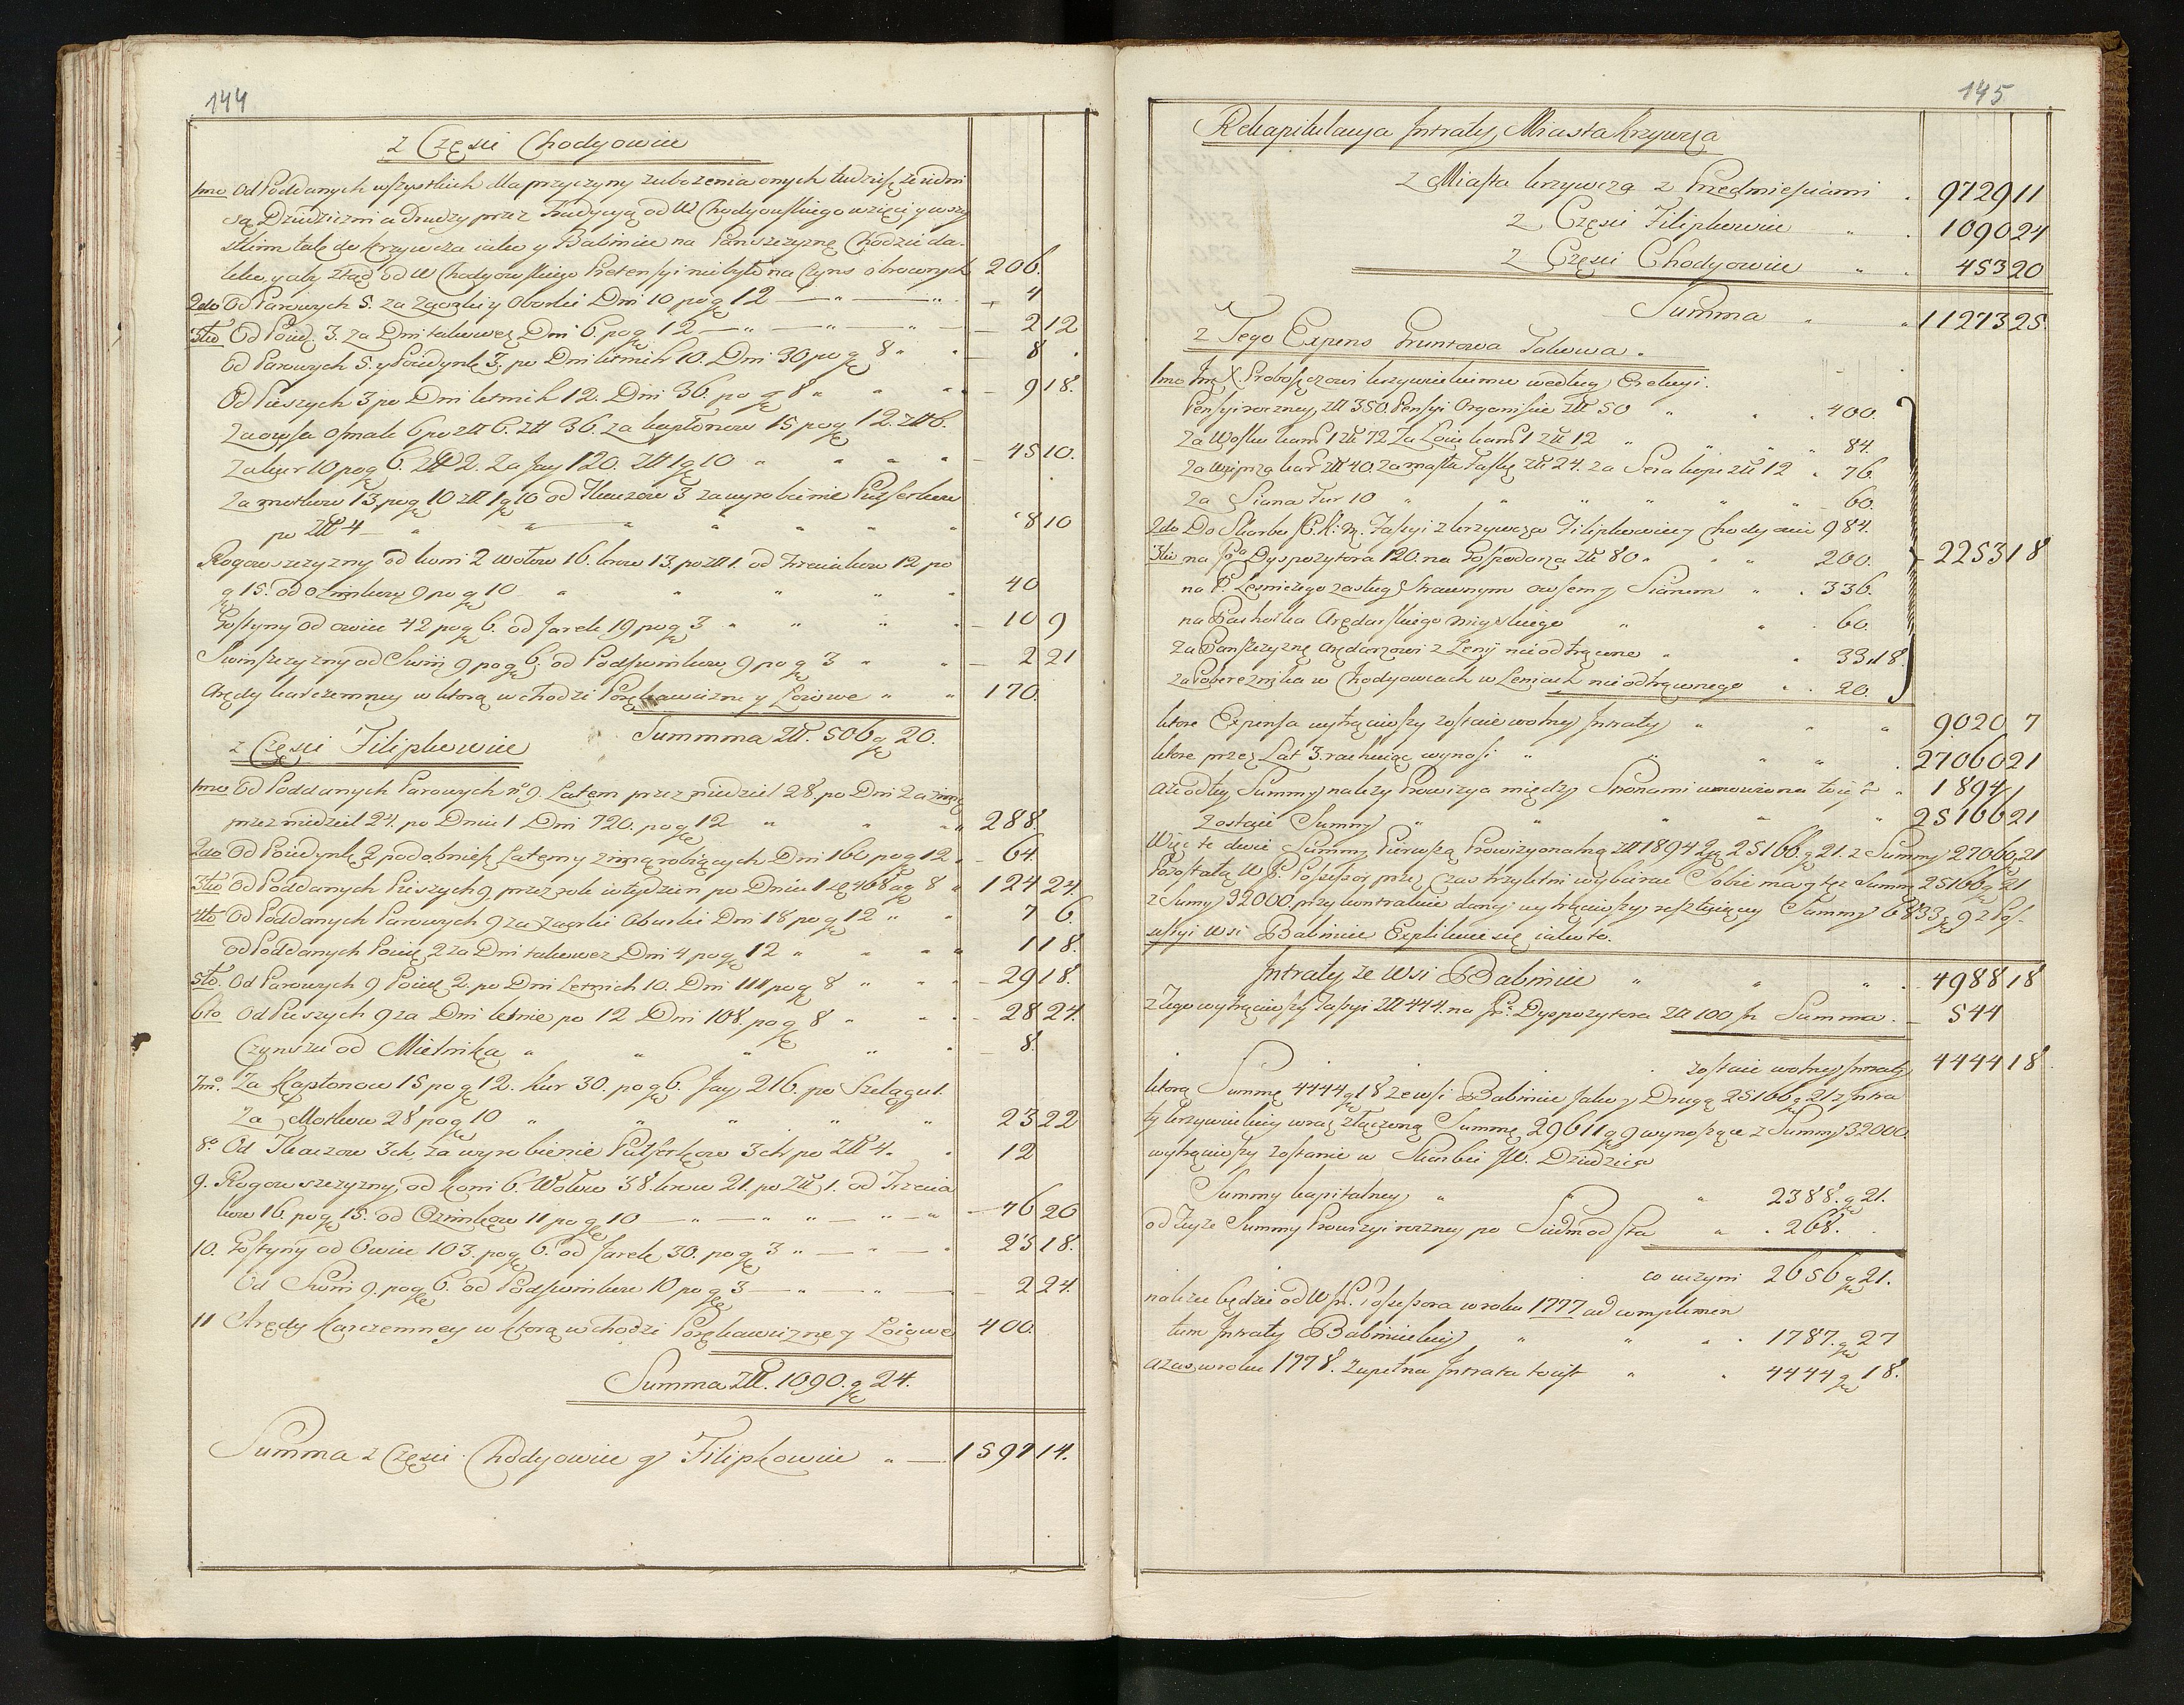 144
z Części Chodyowiec
1mo Od Poddanych wszystkich dla przyczyny zubożenia onych tudzież że iedni
są Dziedziczni a drudzy przez Tradycyą od W Chodyowskiego wzięci y wszy
stkim tak do Krzywcza iako y Babiniec na Panszczyznę Chodzić da-
leko, y aby ztąd od W Chodyowskiego Pretensyi nie było na Czynsz obroconych 206.
2do Od Parowych 5. za Zaorki y Oborki Dni 10 po g 12 — 4
3tio Od Poied. 3. za Dni takowez Dni 6 po g 12 — 2 12
Od Parowych 5. y Poiedynk 3. po Dni letnich 10. Dni 30 po g 8 — 8
Od Pieszych 3 po Dni letnich 12. Dni 36. po g 8 — 9 18.
Za owsa Osmak 6 po Zł 6. Zł 36. za kapłonow 15 po g 12. Zł 6.
Za kur 10 po g 6. Zł 2. Za Jay 120. Zł 1 g 10 — 45 10.
Za motkow 13 po g 10 Zł 1 g 10 od Tkaczow 3 za wyrobienie Pułsetkow
po Zł 4 — 8 10
Rogowszczyzny od koni 2 wołow 16. krow 13. po Zł 1. od Trzeciakow 12 po
g 15. od ozimkow 9 po g 10 40
Gostyny od owiec 42 po g 6. od Jarek 19 po g 3 — 10 9
Swinszczyzny od Swiń 9 po g 6. od Podswinkow 9 po g 3 — 2 21
Arędy karczemney w ktorą wchodzi Porękawiczne y Łoiowe 170.
Summma Zł. 506 g 20.
z Części Filipkowiec
1mo Od Poddanych Parowych no 9. Latem przez niedziel 28. po Dni 2 a zimą
przez niedziel 24. po Dniu 1 Dni 720. po g 12 288.
2do Od Poiedynk 2 podobnież Latem y zimą robiących Dni 160 po g 12 — 64.
3tio Od Poddanych Pieszych 9 przez rok w tydzien po Dniu 1 468 a g 8 124 24.
4to Od Poddanych Parowych 9 za zaorki Oborki Dni 18 po g 12 — 7 6.
od Poddanych Poied 2 za Dni takowez Dni 4 po g 12 1 18.
5to. Od Parowych 9 Poied 2. po Dni Letnich 10. Dni 111 po g 8 — 29 18.
6to Od Pieszych 9 za Dni letnie po 12 Dni 108. po g 8 — 28 24.
Czynszu od Mielnika — 8.
7mo. Za Kapłonow 15 po g 12. Kur 30. po g 6. Jay 216. po Szelągu 1.
Za Motkow 28 po g 10 23 22
8o. Od Tkaczow 3ch, za wyrobienie Pułsetkow 3ch po Zł 4. 12
9. Rogowszczyzny od koni 6. Wołow 38. krow 21. po Zł 1. od Trzecia
kow 16. po g 15. od Ozimkow 11 po g 10 — 76 20
10. Gostyny od Owiec 103. po g 6. od Jarek 30. po g 3 — 23 18.
Od Swiń 9. po g 6. od Podswinkow 10 po g 3 — 2 24.
11 Arędy Karczemney w ktorą wchodzi Porękawiczne y Łoiowe 400.
Summa Zł. 1090. g 24.
Summa z Części Chodyowiec y Filipkowiec — 1597 14.
145
Rekapitulacya Jntraty Miasta Krzywcza
z Miasta krzywcza z Przedmiesciami 9729 11
z Części Filipkowiec 1090 24
z Części Chodyowiec 453 20
Summa 11273 25.
z Tego Expens Gruntowa Takowa.
1mo Jmę X Proboszczowi krzywieckiemu według Erekcyi.
Pensyi roczney Zł 350. Pensyi Organiscie Zł 50 400.
Za Wosku kam 1 Zł 72 Za Łoiu kam 1 Zł 12 84.
Za wieprza kar Zł 40. za masła Faskę Zł 24. za Sera kopę Zł 12 76.
Za Siana Fur 10 60.
2do Do Skarbu Taxyi z krzywcza Filipkowiec y Chodyowiec 984.
3tio na Po Dyspozytora 120. na Gospodarza Zł 80 200. 2253 18
na P. Lesniczego zasług Strawnym owsem y Sianem 336.
na Pachołka Arędarskiego mieyskiego 60
za Panszczyznę Arędarzowi z Ceny nieodtrącone 33 18.
za Pobereznika w Chodyowcach w Cenach nieodtrąconego 20.
ktore Expensa wytrąciwszy zostaie wolney Jntraty 9020 7
ktore przez Lat 3. rachuiąc wynosi 27060 21
a że od tey Summy należy Prowizya między Stronami umowiona to iest 1894
zostaie Summy 25166 21
Więc te dwie Summy Pierwszą Prowizyonalną Zł 1894 25166. g 21. z Summy 27060 21
Pozostałą W P. Possessor przez Czas trzyletni wybierać Sobie ma y tęż Summę 25166 g 21
z Sumy 32000. przy kontrakcie daney wytrąciwszy resztuiącey Summy 6833 g 9 z Pos-
sessyi wsi Babiniec Explikuie się iako to.
Jntraty ze Wsi Babiniec 4988 18
z Tego wytrąciwszy Taxyi Zł 444. na Po. Dyspozytora Zł 100 Summa 544
zostaie wolney Jntraty 4444 18.
ktorą Summę 4444 g 18 ze wsi Babiniec Jako y Drugą 25166 g 21 z Jntra
ty krzywieckiey wraz złączoną Summę 29611 g 9 wynoszące z Summy 32000.
wytrąciwszy zostanie w Skarbie JW. Dziedzica
Summy kapitalney 2388. g 21.
od Teyże Summy Prowizyi roczney po Siedm od sta 268.
co uczyni 2656 g 21.
należeć będzie od W P. Possessora w roku 1777 ad complemen
tum Jntraty Babinieckiey 1787. g 27
a zas w roku 1778. zupełna Jntrata to iest 4444 g 18.